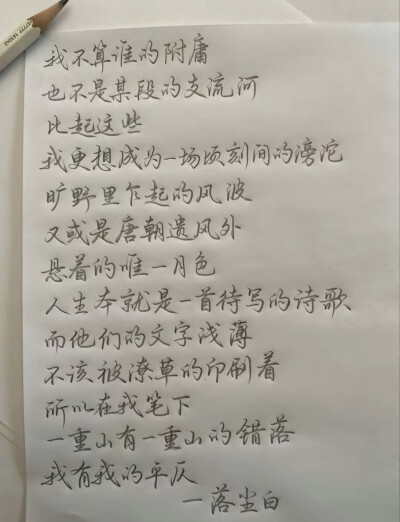 我不算谁的附庸
也不是某段的支流河
比起这些
我更想成为一场顷刻间的滂沱
旷野里乍起的风波
又或是唐朝遗风外
悬着的唯一月色
人生本就是一首待写的诗歌
而他们的文字浅薄
不该被潦草的印刷着
所以在我笔下
一重山有一重山的错落
我有我的平仄
一落尘白